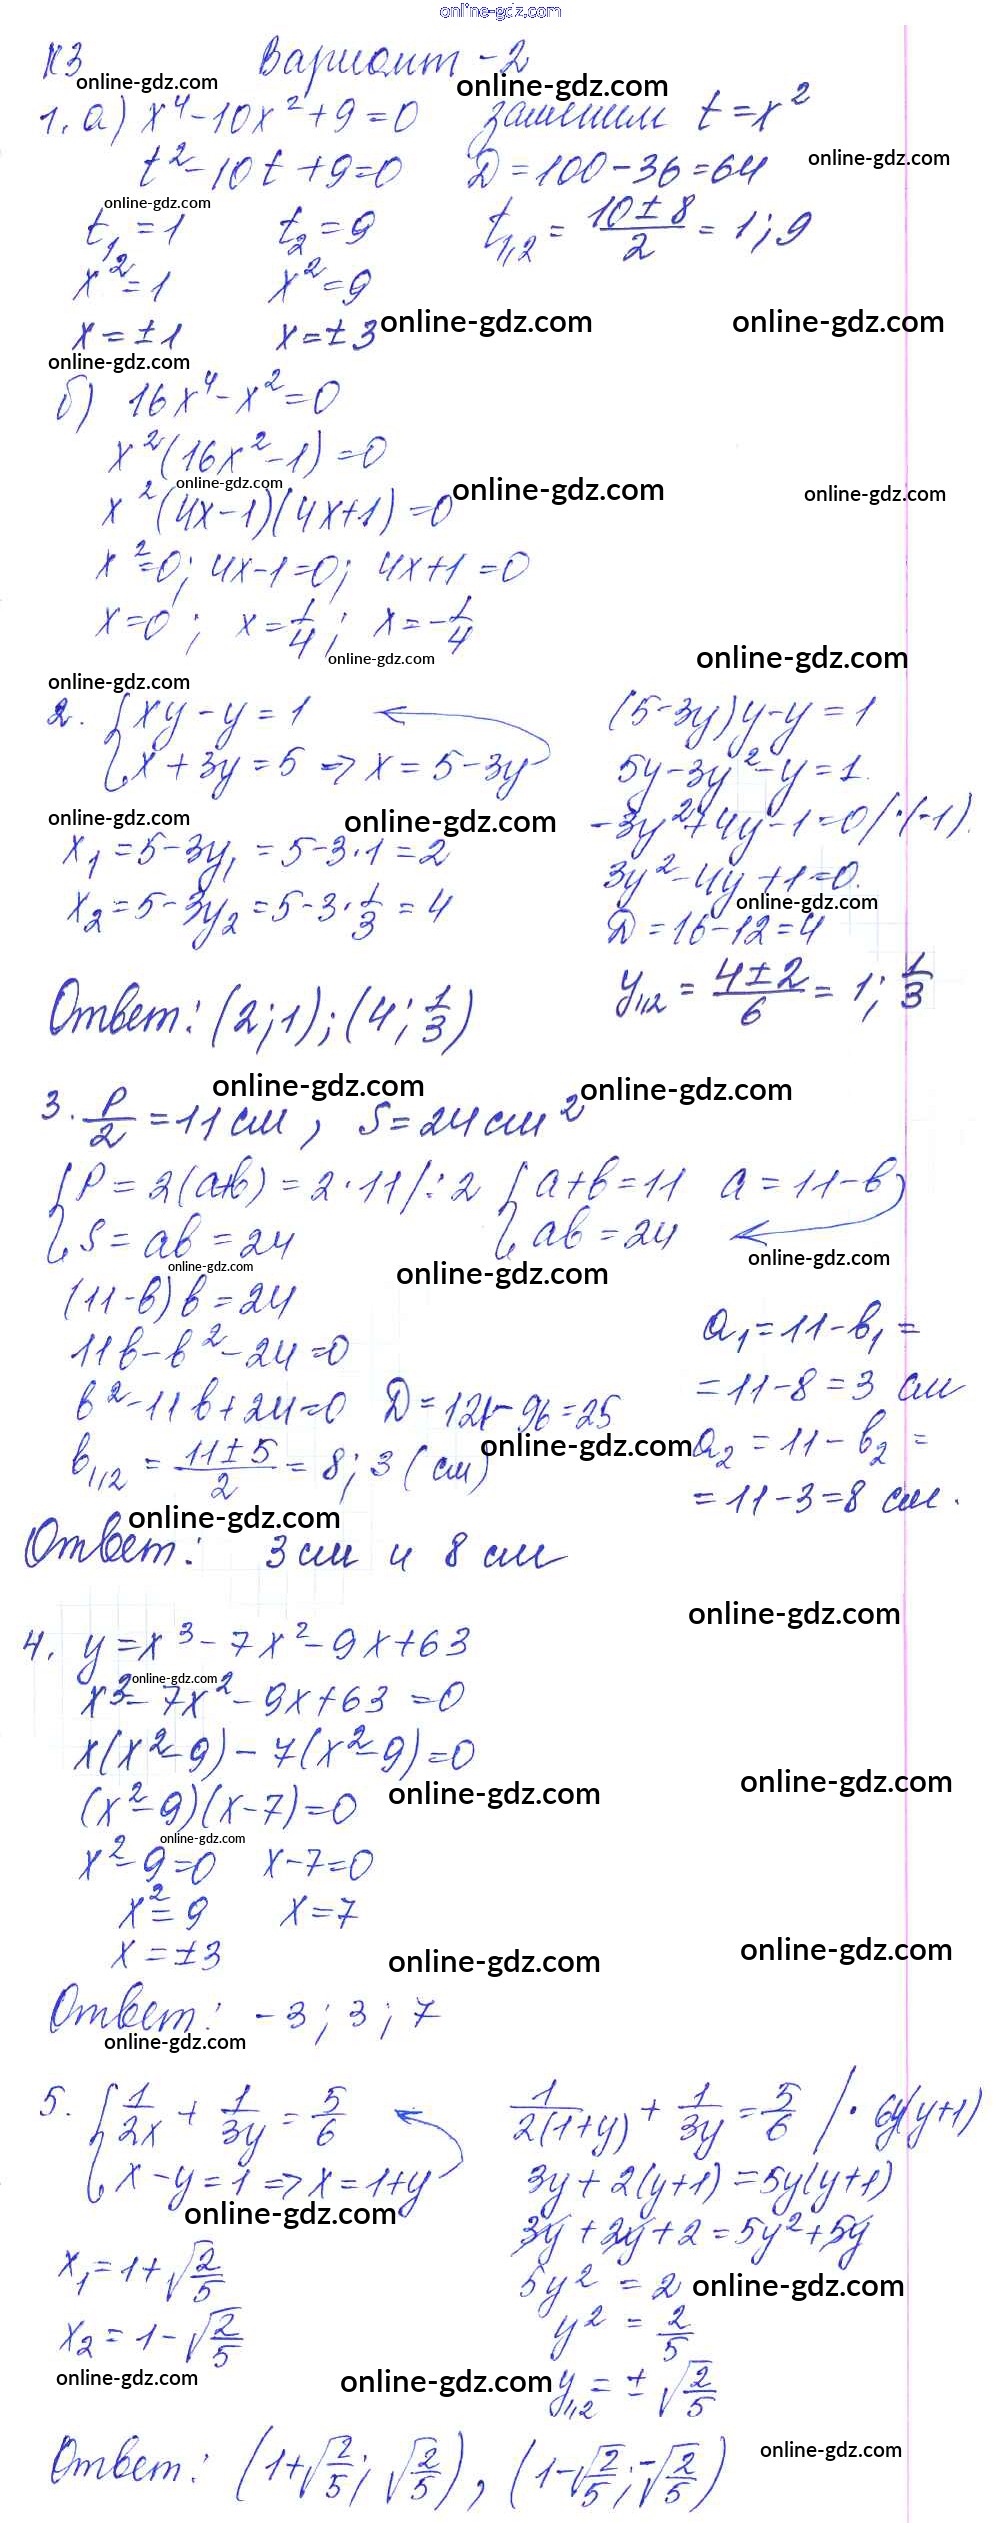 online-gdz.com
К3 Вариант-2
online-gdz.com online-gdz.com
1. а) x⁴-10x²+9=0 заменим t=x²
t²-10t+9=0 D=100-36=64 online-gdz.com
online-gdz.com
t₁=1 t₂=9 t₁,₂ = (10±8)/2 = 1; 9
x²=1 x²=9
x=±1 x=±3 online-gdz.com online-gdz.com
online-gdz.com
б) 16x⁴-x²=0
x²(16x²-1)=0
online-gdz.com online-gdz.com online-gdz.com
x²(4x-1)(4x+1)=0
x²=0; 4x-1=0; 4x+1=0
x=0; x=1/4; x=-1/4
online-gdz.com online-gdz.com
online-gdz.com
2. { xy-y=1 (5-3y)y-y=1
x+3y=5 => x=5-3y 5y-3y²-y=1.
online-gdz.com online-gdz.com -3y²+4y-1=0 /·(-1).
x₁=5-3y₁=5-3·1=2 3y²-4y+1=0.
online-gdz.com
x₂=5-3y₂=5-3·1/3=4 D=16-12=4
y₁,₂ = (4±2)/6 = 1; 1/3
Ответ: (2;1); (4; 1/3)
online-gdz.com online-gdz.com
3. P/2=11см, S=24см²
{ P=2(a+b)=2·11 /:2 { a+b=11 a=11-b
S=ab=24 ab=24
online-gdz.com online-gdz.com online-gdz.com
(11-b)b=24
11b-b²-24=0 a₁=11-b₁=
b²-11b+24=0 D=121-96=25 =11-8=3 см
online-gdz.com
b₁,₂ = (11±5)/2 = 8; 3 (см) a₂=11-b₂=
=11-3=8 см.
online-gdz.com
Ответ: 3см и 8см
online-gdz.com
4. y=x³-7x²-9x+63
online-gdz.com
x³-7x²-9x+63=0
x(x²-9)-7(x²-9)=0
online-gdz.com online-gdz.com
(x²-9)(x-7)=0
online-gdz.com
x²-9=0 x-7=0
x²=9 x=7
x=±3
online-gdz.com online-gdz.com
Ответ: -3; 3; 7
online-gdz.com
5. { 1/2x + 1/3y = 5/6 1/2(1+y) + 1/3y = 5/6 /·6y(y+1)
x-y=1 => x=1+y 3y+2(y+1)=5y(y+1)
online-gdz.com
3y+2y+2=5y²+5y
x₁=1+√2/5 5y²=2 online-gdz.com
y²=2/5
x₂=1-√2/5
online-gdz.com online-gdz.com
y₁,₂=±√2/5
online-gdz.com
Ответ: (1+√2/5; √2/5), (1-√2/5; -√2/5)